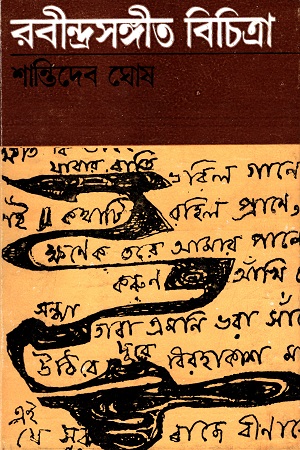 রবীন্দ্রসঙ্গীত বিচিত্রা
শান্তিদেব ঘোষ
যাবার রাতি
ভরিল গানে
কথাটি রহিল প্রাণে
ক্ষণেক তরে আমার পানে
করুণ আঁখি
সন্ধ্যা
তারা এমনি ভরা সাঁ
উঠিবে দূরে বিরহাকাশ মা
এই
যে সুর বাজে বীণা